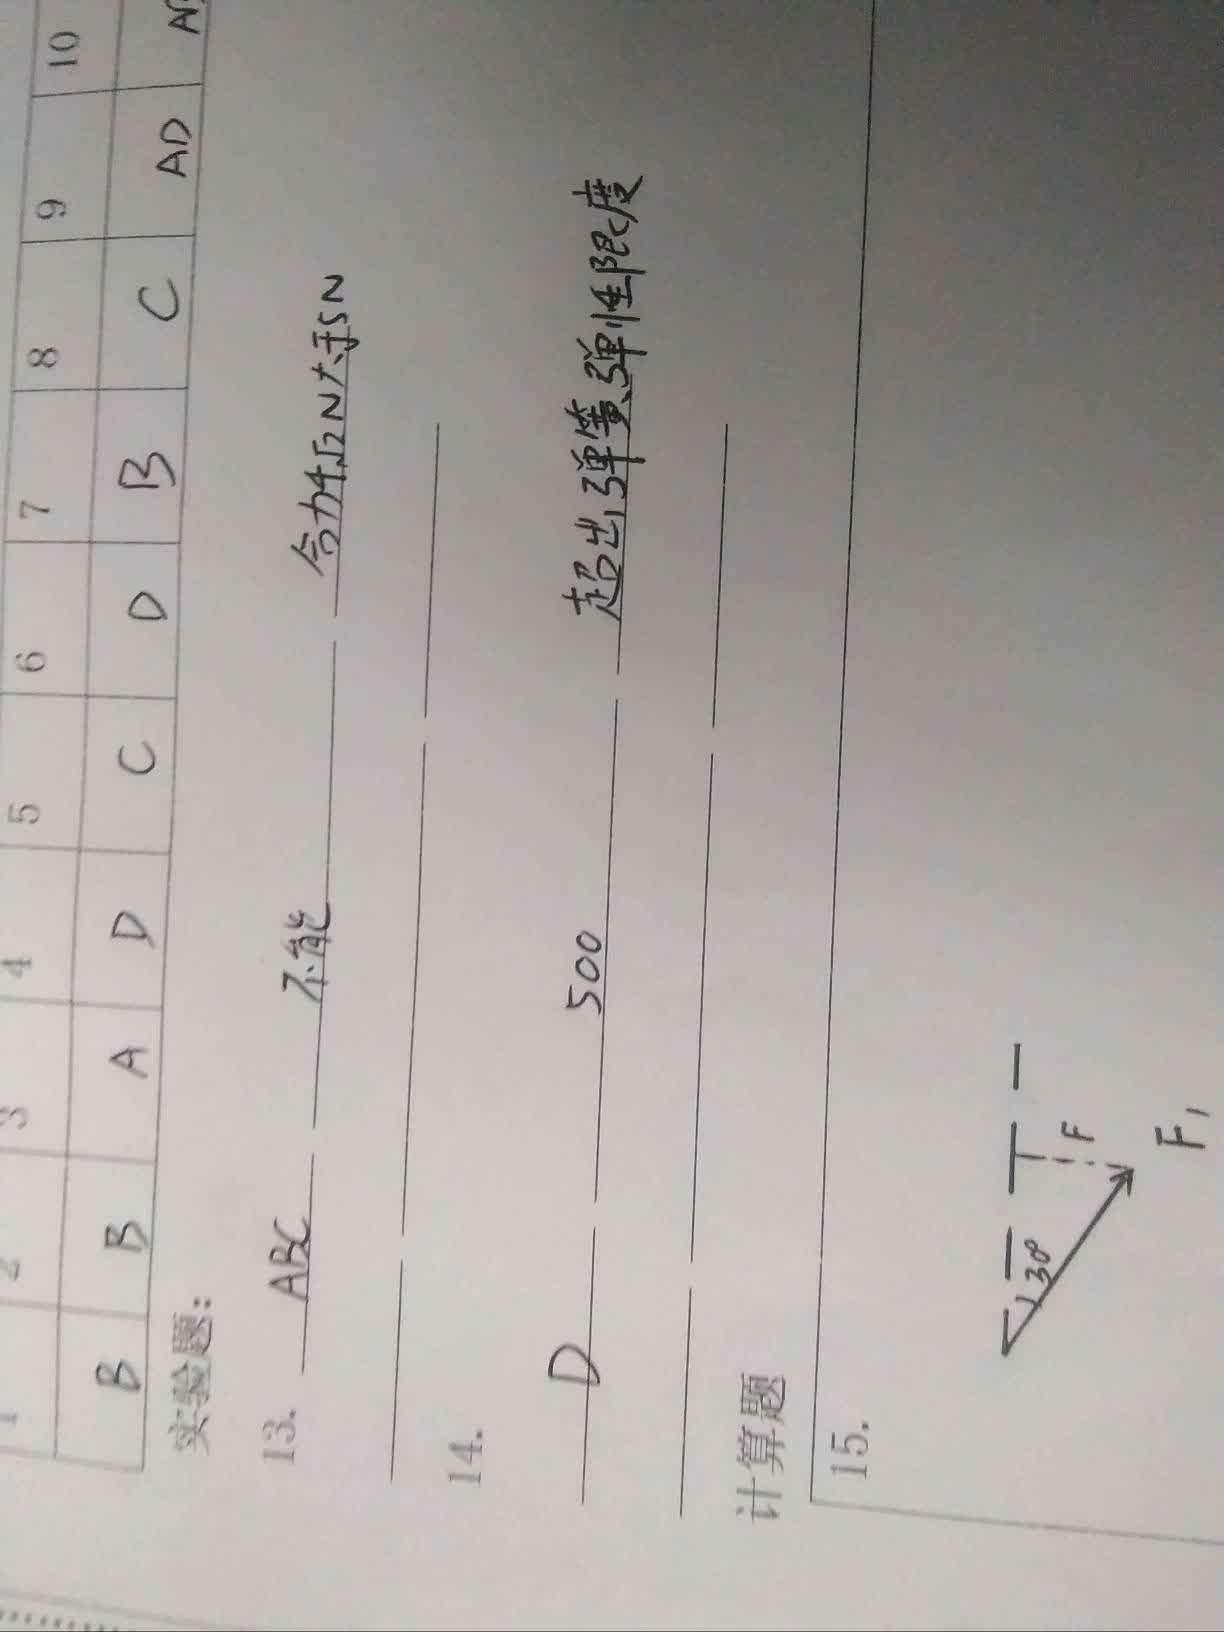 1 2 3 4 5 6 7 8 9 10
B B A D C D B C AD
实验题:
13. ABC 不能 合力4√2N大于5N
14.
D 500 超出弹簧弹性限度
计算题
15.
30° F
F₁